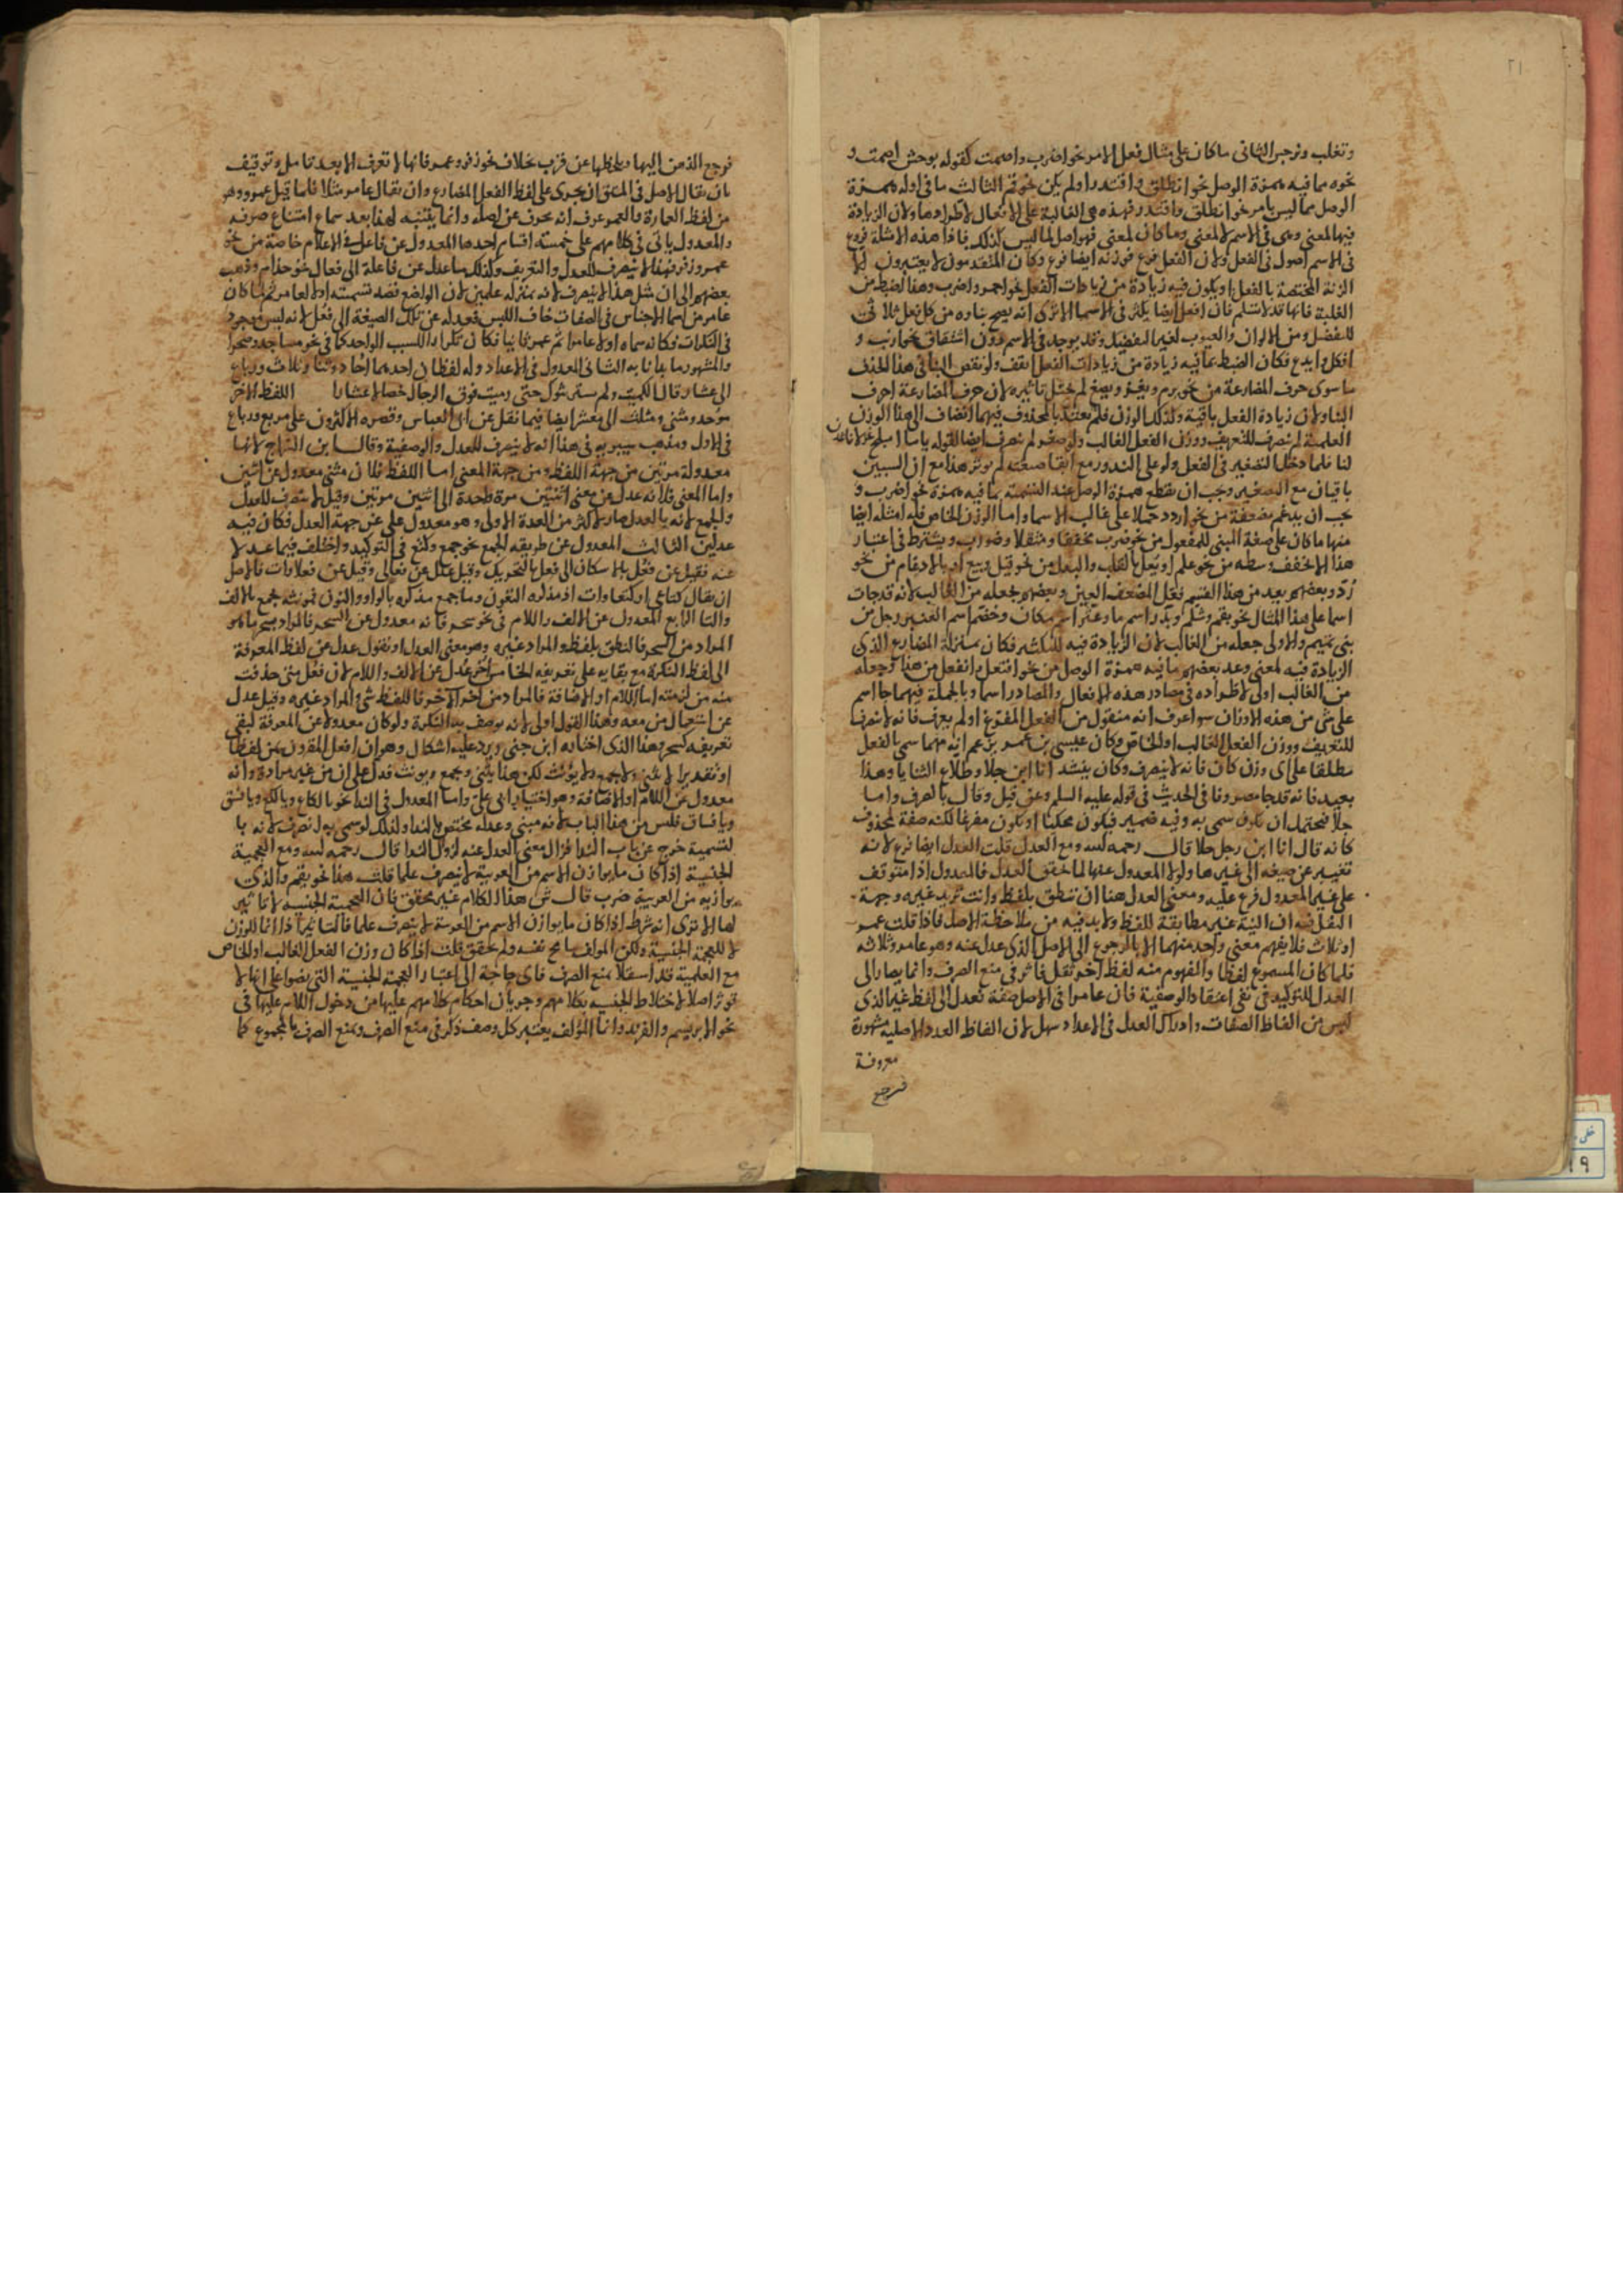 ٢١
وتغلب ونرجس الثاني ما كان على مثال فعل الامر نحو اضرب واصمت كقوله بوحش اصمت و
نحوه مما فيه همزة الوصل نحو انطلق واقتدر اولم يكن نحو قم الثالث ما في اوله همزة
الوصل مما ليس بامر نحو انطلق واقتدر فهذه هي الغالبة على الافعال لاطرادها ولان الزيادة
فيها لمعنى وهي في الاسم لا لمعنى وما كان لمعنى فهو اصل لما ليس كذلك فاذا هذه الامثلة فروع
في الاسم اصول في الفعل ولان الفعل فرع فوزنه ايضا فرع وكان المتقدمون لا يعتبرون الا
الزنة المختصة بالفعل او يكون فيه زيادة من زيادات الفعل نحو احمر واضرب وهذا اضبط من
الغلبة فانها قد لا تسلم فان افعل ايضا يكثر في الاسما الا ترى انه يصح بناوه من كل فعل ثلاثي
للتفضيل ومن الالوان والعيوب لغير التفضيل وقد يوجد في الاسم دون اشتقاق نحو ارنب و
افكل وايدع فكان الضبط بما فيه زيادة من زيادات الفعل اثقف ولو نقص البنا في هذا الحذف
ما سوى حرف المضارعة من نحو يرم ويغز ويضع لم يختل تاثيره لان حرف المضارعة احرف
البنا ولان زيادة الفعل باقية وكذلك الوزن فلم يعتد بالمحذوف فيهما انضاف الى هذا الوزن
العلمية لم تصرف للتعريف ووزن الفعل الغالب ولو صغر لم تصرف ايضا لقوله ياما اميلح غزلانا شدن
لنا فلما دخل التصغير في الفعل ولو على الندور مع ابقا صيغته لم يوثر هذا مع ان السببين
باقيان مع التصغير وجب ان يقطع همزة الوصل عند التسمية بما فيه همزة نحو اضرب و
يجب ان يدغم بضعفة من نحو اردد حملا على غالب الاسما واما الوزن الخاص فله امثلة ايضا
منها ما كان على صيغة المبني للمفعول من نحو ضرب مخففا ومثقلا وضورب ويشترط في اعتبار
هذا الا يخفف وسطه من نحو علم او يعل بالقلب والبعل من نحو قيل وبيع او بالادغام من نحو
رد وبعضهم يعد من هذا القسم فعل المضعف العين وبعضهم يجعله من الغالب لانه قد جات
اسما على هذا المثال نحو بقم وشلم وبذر اسم ما وعثر اسم مكان وخضم اسم العنبر رجل من
بني تميم والاولى جعله من الغالب لان الزيادة فيه للتكثير فكان بمنزلة المضارع الذي
الزيادة فيه لمعنى وعد بعضهم ما فيه همزة الوصل من نحو افتعل وانفعل من هذا وجعله
من الغالب اولى لاطراده في مصادر هذه الافعال والمصادر اسما وبالجملة فمهما جا اسم
على شي من هذه الاوزان سوا عرف انه منقول من الفعل المفتوح او لم يعرف فانه لا ينصرف
للتعريف ووزن الفعل الغالب او الخاص وكان عيسى بن عمر يزعم انه مهما سمي بالفعل
مطلقا على اي وزن كان فانه لا ينصرف وكان ينشد انا ابن جلا وطلاع الثنايا وهذا
بعيد فانه قد جا مصروفا في الحديث في قوله عليه السلم وعن قيل وقال بالصرف واما
جلا فيحتمل ان يكون سمي به وفيه ضمير فيكون محكيا او يكون مفرغا لكنه صفة لمحذوف
كانه قال انا ابن رجل جلا قال رحمه الله ومع العدل قلت العدل ايضا فرع لانه
تغيير عن صيغة الى غيرها ولولا المعدول عنها لما تحقق العدل فالمعدول اذا متوقف
على غير المعدول فرع عليه ومعنى العدل هنا ان تنطق بلفظ وانت تريد غيره وجهة
الثقل فيه ان النية غير مطابقة للفظ ولا بد فيه من ملاحظة الاصل فاذا قلت عمر
او ثلاث فلا يفهم معنى واحد منهما الا بالرجوع الى الاصل الذي عدل عنه وهو عامر وثلاثه
فلما كان المسموع لفظا والمفهوم منه لفظ اخر ثقل فاثر في منع الصرف وانما يصار الى
العدل للتوكيد في نفي اعتقاد الوصفية فان عامرا في الاصل صفة تعدل الى لفظ غير الذي
ليس من الفاظ الصفات وادراك العدل في الاعداد سهل لان الفاظ العدد الاصلية مشهورة
معروفة
فيرجع
فرجع الذهن اليها ويلحظها عن قرب بخلاف نحو زفر وعمر فانها لا تعرف الا بعد تامل وتوقيف
بان يقال الاصل في المشتق ان يجرى على لفظ الفعل المضارع وان يقال عامر مثلا فلما قيل عمر وهو
من لفظ العمارة والعمر عرف انه محرف عن اصله وانما يتنبه لهذا بعد سماع امتناع صرفه
والمعدول ياتي في كلامهم على خمسة اقسام احدها المعدول عن فاعل في الاعلام خاصة من نحو
عمر وزفر فهذا لا ينصرف للعدل والتعريف وكذلك ما عدل عن فاعلة الى فعال نحو حذام وذهب
بعضهم الى ان مثل هذا لا ينصرف لانه بمنزلة علمين لان الواضع قصد تسميته اولا عامر ثم لما كان
عامر من اسما الاجناس في الصفات خاف اللبس فعدله عن تلك الصيغة الى فعل لانه ليس موجود
في النكرات فكانه سماه اولا عامرا ثم عمر ثانيا فكان تكرار السبب الواحد كما في نحو مساجد وصحرا
والمشهور ما بدانا به الثاني المعدول في الاعداد وله لفظان احدهما احاد وثنا وثلاث ورباع
الى عشار وقال الكميت ولم يستريثوك حتى رميت فوق الرجال خصالا عشارا اللفظ الاخر
موحد ومثنى ومثلث الى معشر ايضا فيما نقل عن ابي العباس وقصره الاكثرون على مربع ورباع
في الاول ومذهب سيبويه في هذا انه لا ينصرف للعدل والوصفية وقال ابن السراج لانها
معدولة مرتين من جهة اللفظ ومن جهة المعنى اما اللفظ فلان مثنى معدول عن اثنين
واما المعنى فلانه عدل عن معنى اثنتين مرة واحدة الى اثنين مرتين وقيل لا ينصرف للعدل
والجمع لانه بالعدل صار لاكثر من العدة الاولى وهو معدول على غير جهة العدل فكان فيه
عدلين الثالث المعدول عن طريقة الجمع نحو جمع وكتع في التوكيد واختلف فيما عدلا
عنه فقيل عن فعل بالاسكان الى فعل بالتحريك وقيل عدل عن فعالى وقيل عن فعلاوات فالاصل
ان يقال كتاعى او كتعاوات اذ مذكره اكتعون وما جمع مذكره بالواو والنون فمونثه يجمع بالالف
والتا الرابع المعدول عن الالف واللام في نحو سحر فانه معدول عن السحر فالمراد بسحر ما هو
المراد من السحر فالنطق بلفظ والمراد غيره وهو معنى العدل او تقول عدل عن لفظ المعرفة
الى لفظ النكرة مع بقايه على تعريفه الخامس اخر عدل عن الالف واللام لان فعل متى حذفت
منه من لزمته اما اللام او الاضافة فالمراد من اخر الاخر فاللفظ شي والمراد غيره وقيل عدل
عن استعمال من معه وهذا القول اولى لانه يوصف به النكرة ولو كان معدولا عن المعرفة لبقي
تعريفه كسحر هذا الذي اختاره ابن جني ويرد عليه اشكال وهو ان افعل المقرون بمن لفظا
او تقديرا لا يثنى ولا يجمع ولا يؤنث لكن هذا يثنى ويجمع ويونث فدل على ان من غير مرادة وانه
معدول عن اللام او الاضافة وهو اختيار ابي علي واما المعدول في الندا نحو يا لكاع ويا لكع ويا فسق
ويا فساق فليس من هذا الباب لانه مبني وعدله مختص بالندا ولذلك لو سمي به لانصرف لانه با
لتسمية خرج عن باب الندا فزال معنى العدل عنه لزوال الندا قال رحمه الله ومع العجمية
الجنسية اذا كان ما يوازن الاسم من العربية لا ينصرف علما قلت هذا نحو بقم والذي
يوازنه من العربية ضرب قال ش هذا الكلام غير محقق فان العجمية الجنسية لا تاثير
لها الا ترى انه شرط اذا كان ما يوازن الاسم من العربية لا ينصرف علما فالتاثير اذا انما للوزن
لا للعجمة الجنسية ولكن المولف سامح نفسه ولم يحقق قلت اذا كان وزن الفعل الغالب او الخاص
مع العلمية قد استقلا بمنع الصرف فاي حاجة الى اعتبار العجمة الجنسية التي نصوا على انها لا
توثر اصلا لاختلاط الجنسية بكلامهم وجريان احكام كلامهم عليها من دخول اللام عليها في
نحو الابريسم والفرند وانما المؤلف يعتبر كل وصف ذكر في منع الصرف ويمنع الصرف بالمجموع كما